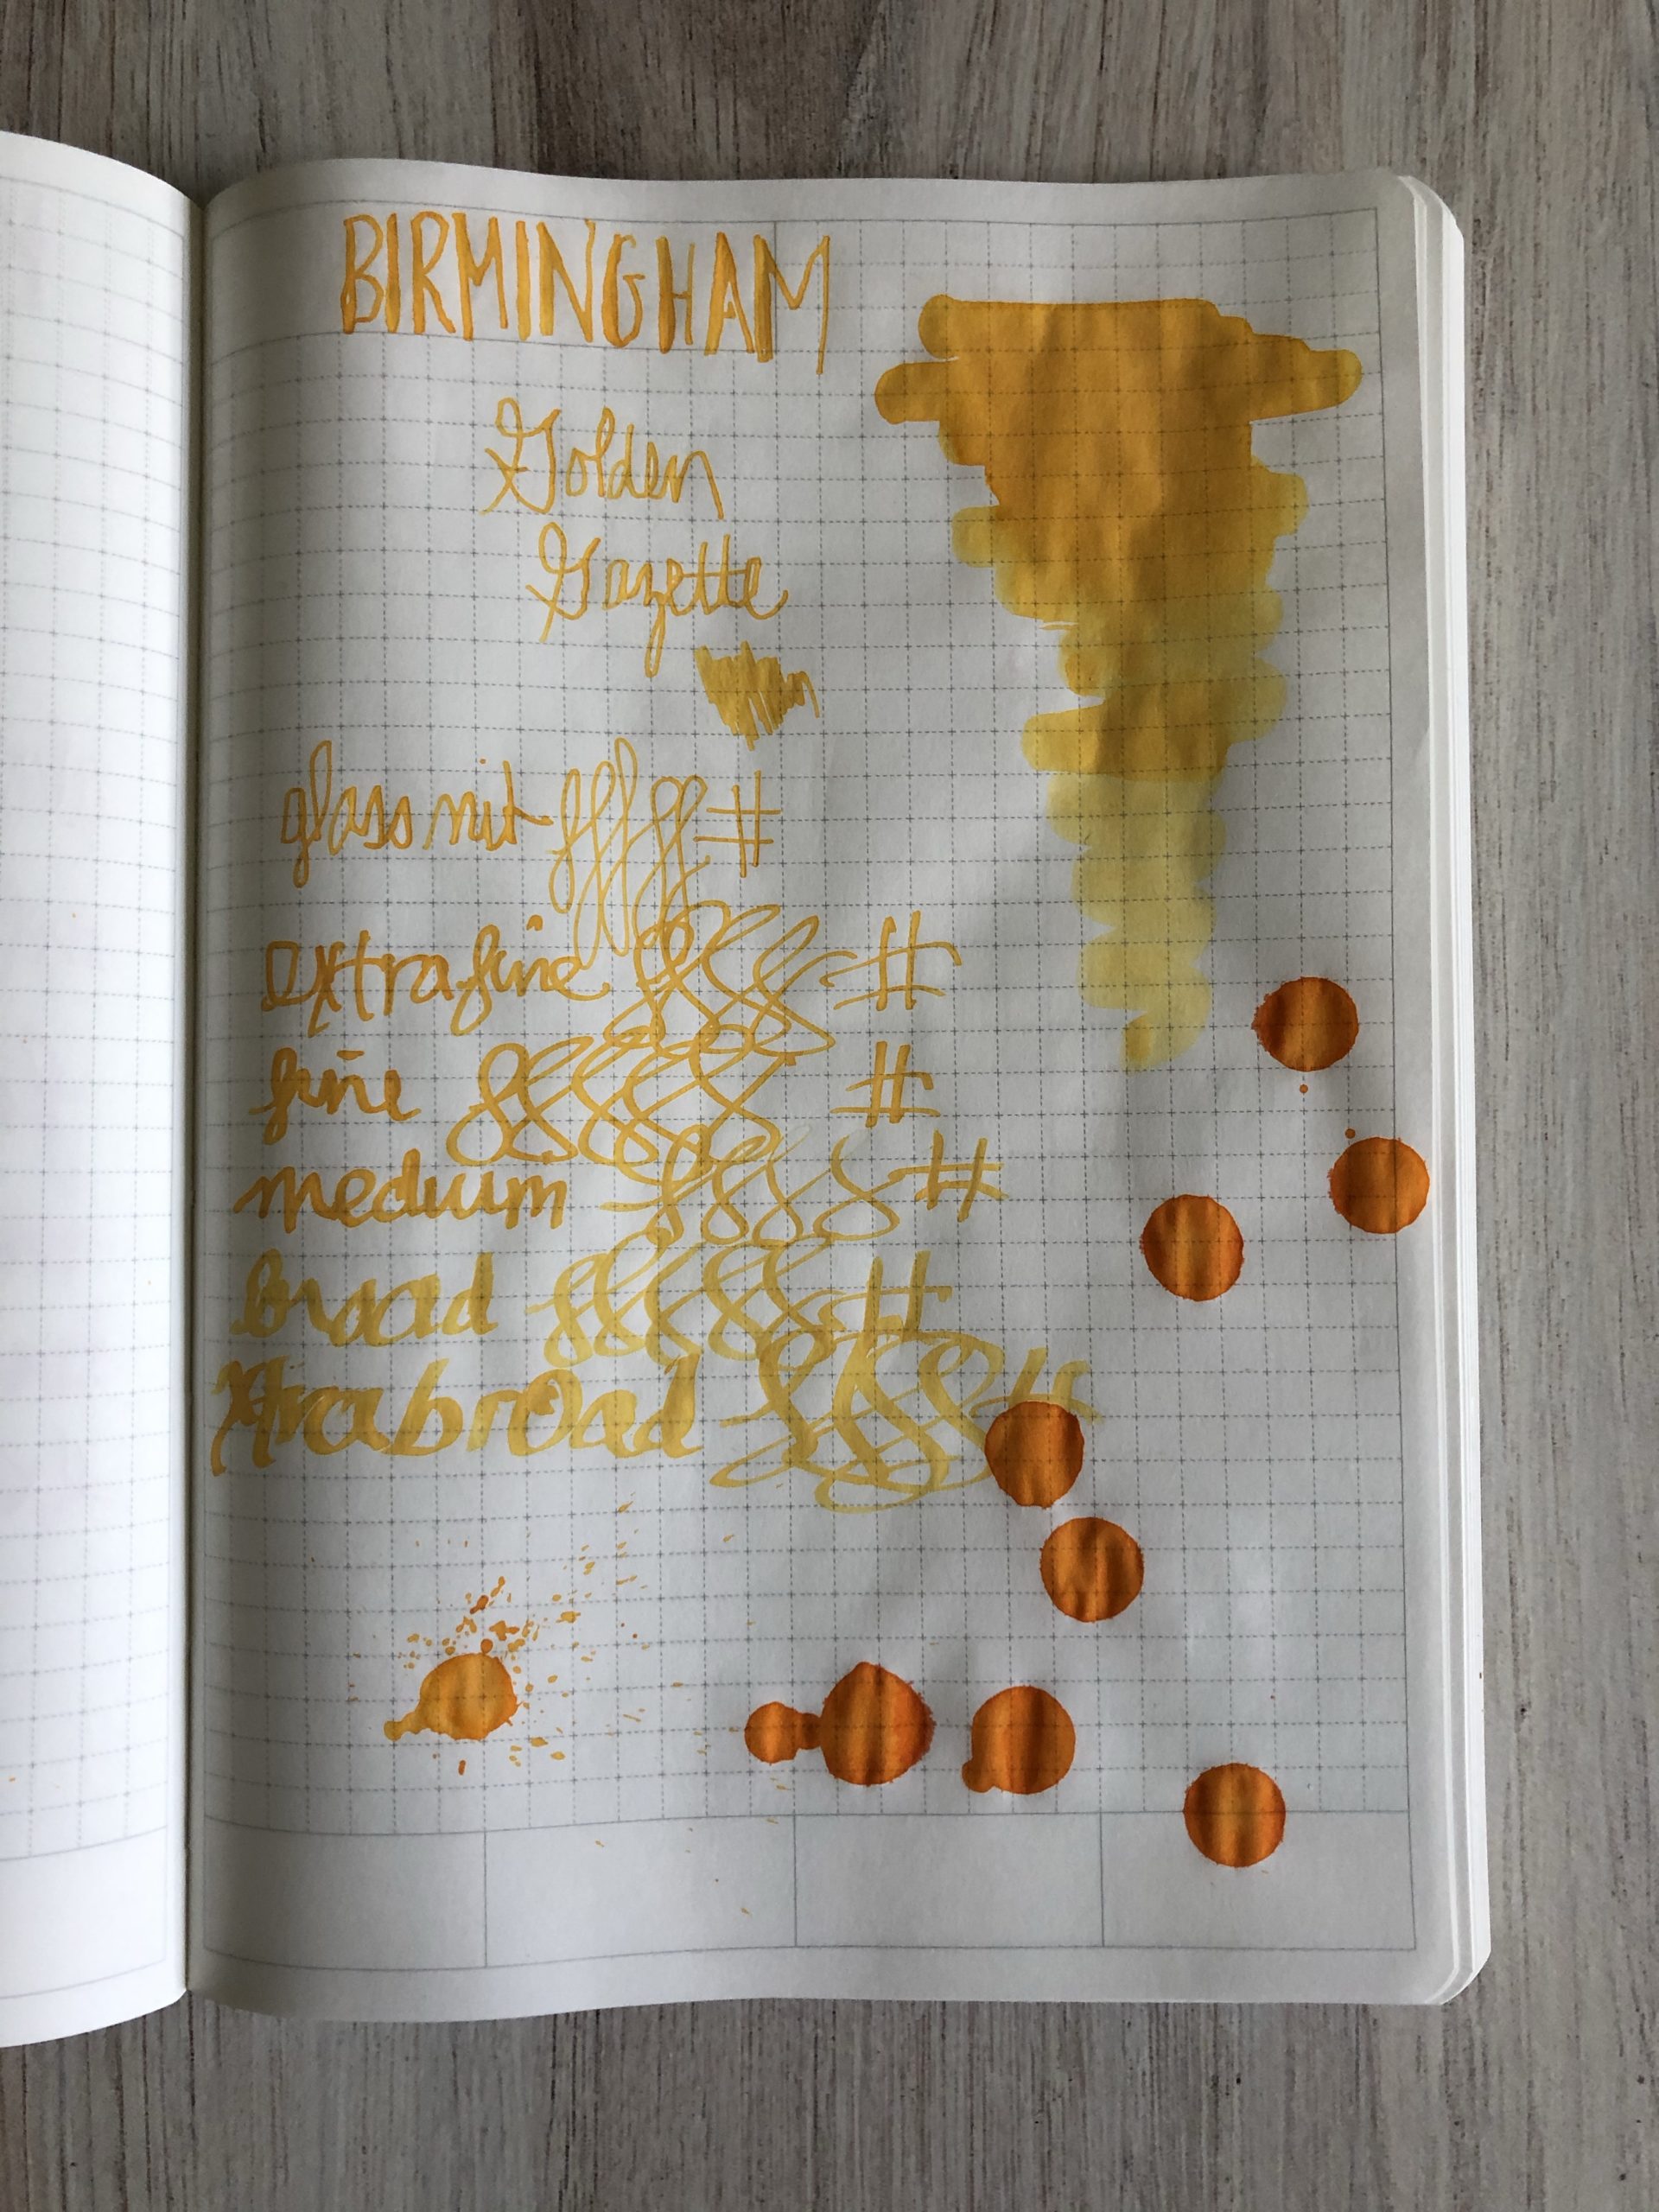 BIRMINGHAM
Golden
Gazette
glass nib #
extra fine #
fine #
medium #
broad #
Xtra broad #